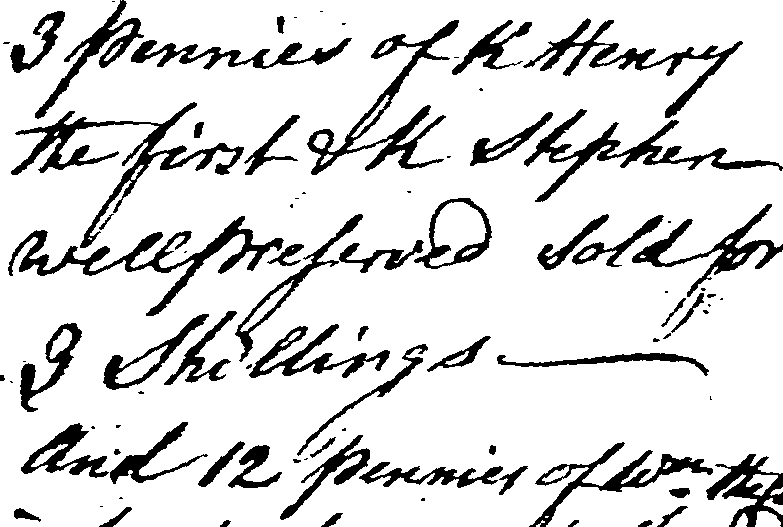 3 Pennies of K Henry
the first & K Stephen
well preserved sold for
3 Shillings
And 12 Pennies of Wm the